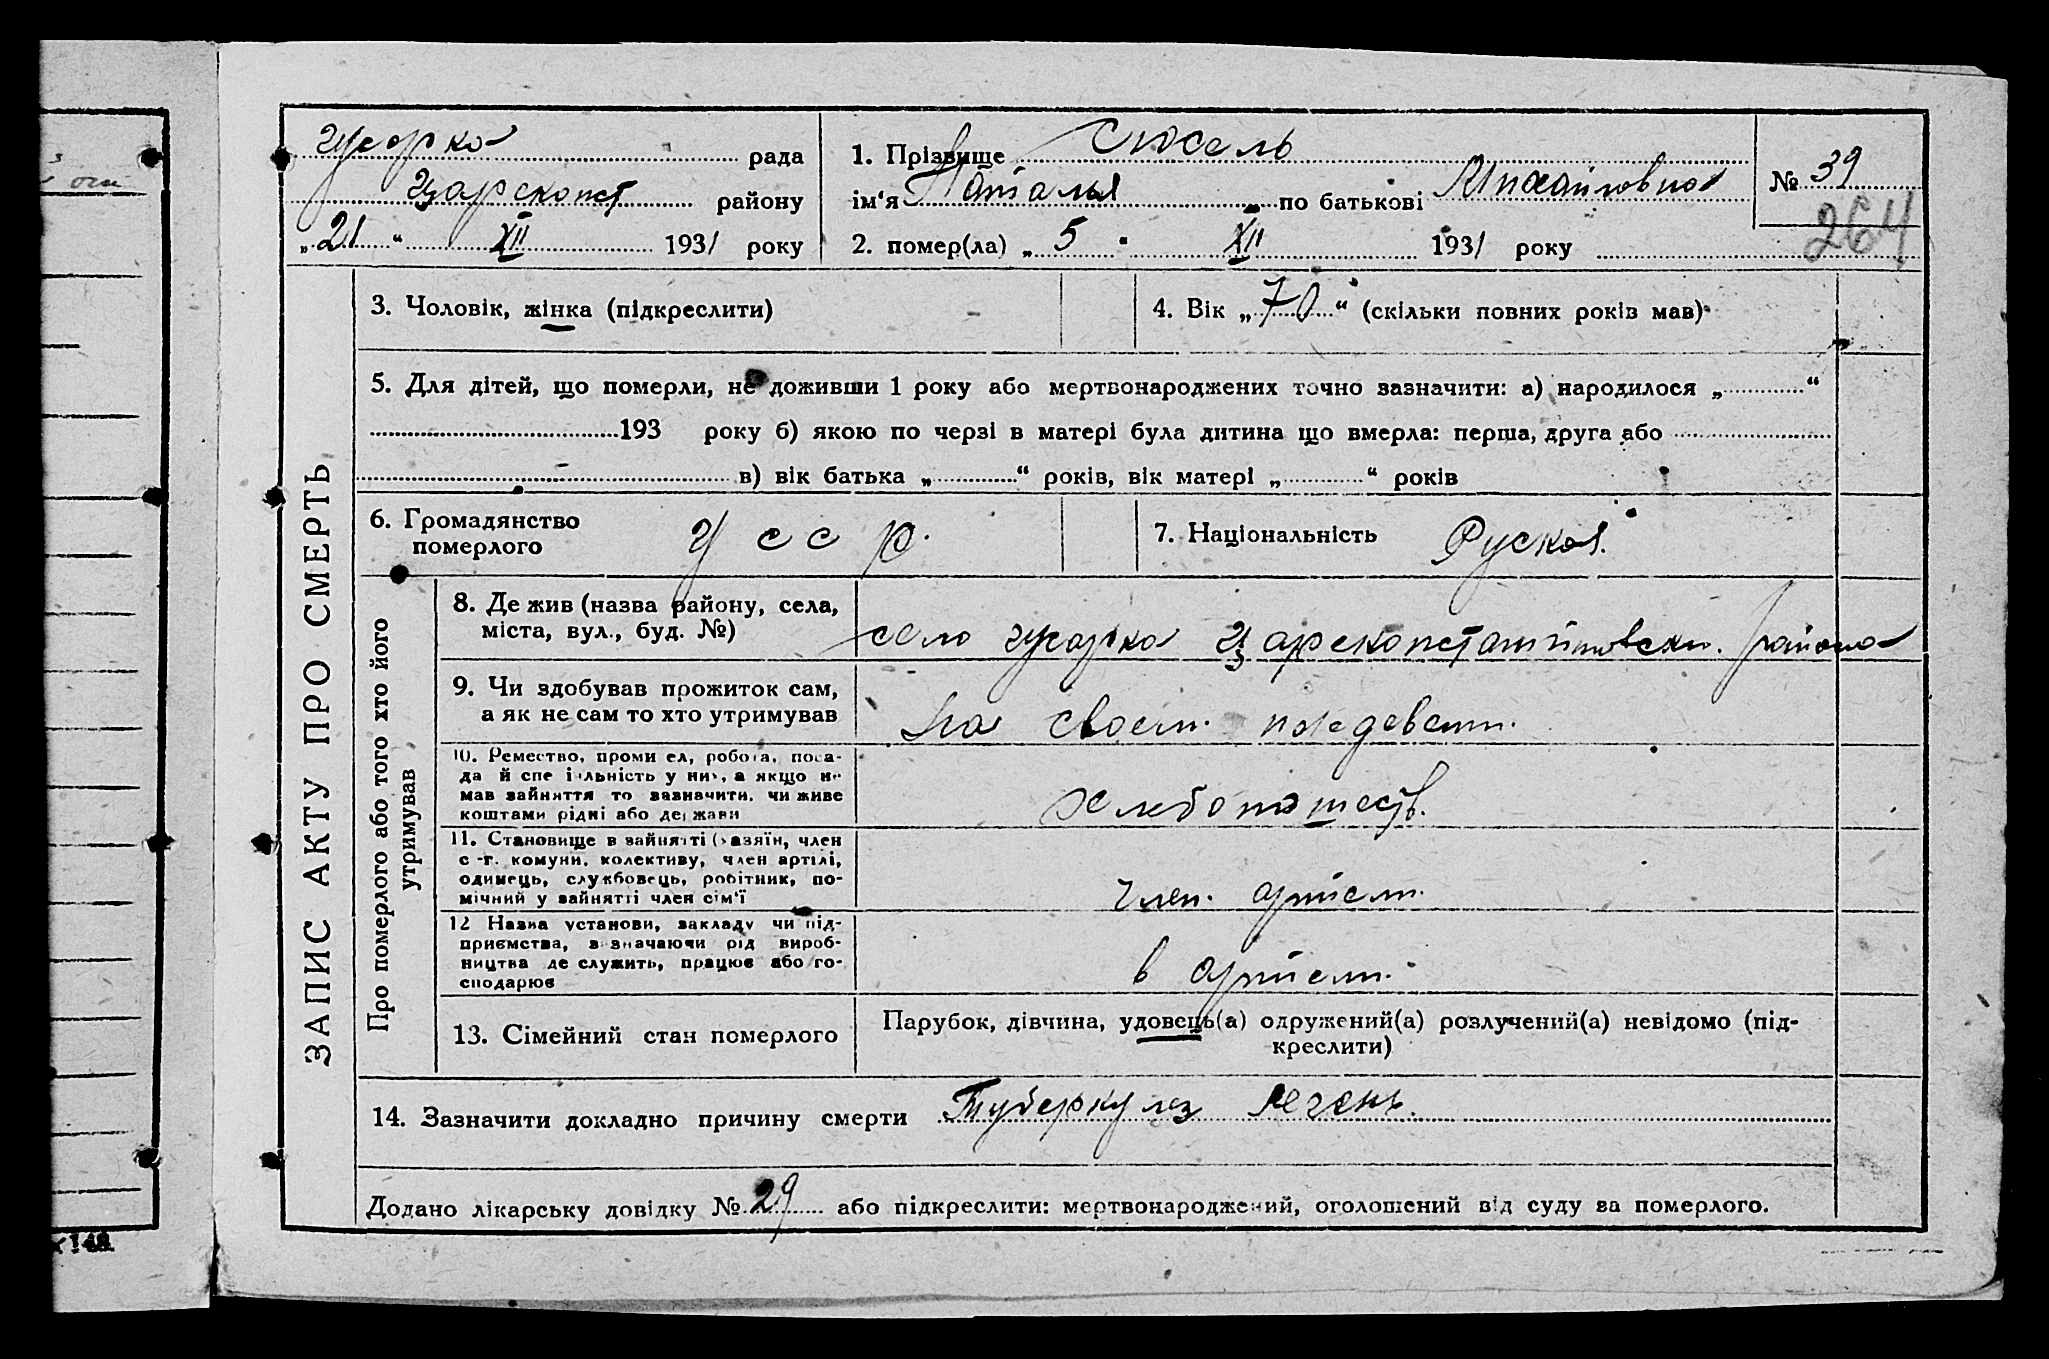 рада
Царсконст району
„21“ XII 1931 року
1. Прізвище
ім‘я Наталья по батькові Михайловна
2. помер(ла) „5“ XII 1931 року
№ 39
264
ЗАПИС АКТУ ПРО СМЕРТЬ
3. Чоловік, жінка (підкреслити)
4. Вік „70“ (скільки повних років мав)
5. Для дітей, що померли, не доживши 1 року або мертвонароджених точно зазначити: а) народилося „ “
193 року б) якою по черзі в матері була дитина що вмерла: перша, друга або
в) вік батька „ “ років, вік матері „ “ років
6. Громадянство
померлого
УССР.
7. Національність Руская.
Про померлого або того хто його
утримував
8. Де жив (назва району, села,
міста, вул., буд. №)
село Царсконстантиновски. района
9. Чи здобував прожиток сам,
а як не сам то хто утримував
на своем.
10. Ремество, промисел, робота, поса-
да й спеціяльність у них, а якщо не
мав зайняття то зазначити, чи живе
коштами рідні або держави
хлебопашеств.
11. Становище в зайнятті (хазяїн, член
с.-г. комуни, колективу, член артілі,
одинець, службовець, робітник, по-
мічний у зайнятті член сім‘ї
член. артели.
12 Назва установи, закладу чи під-
приємства, зазначаючи рід вироб-
ництва де служить, працює або го-
сподарює
в артели.
13. Сімейний стан померлого
Парубок, дівчина, удовець(а) одружений(а) розлучений(а) невідомо (під-
креслити)
14. Зазначити докладно причину смерти Туберкулез печень.
Додано лікарську довідку № 29 або підкреслити: мертвонароджений, оголошений від суду за померлого.